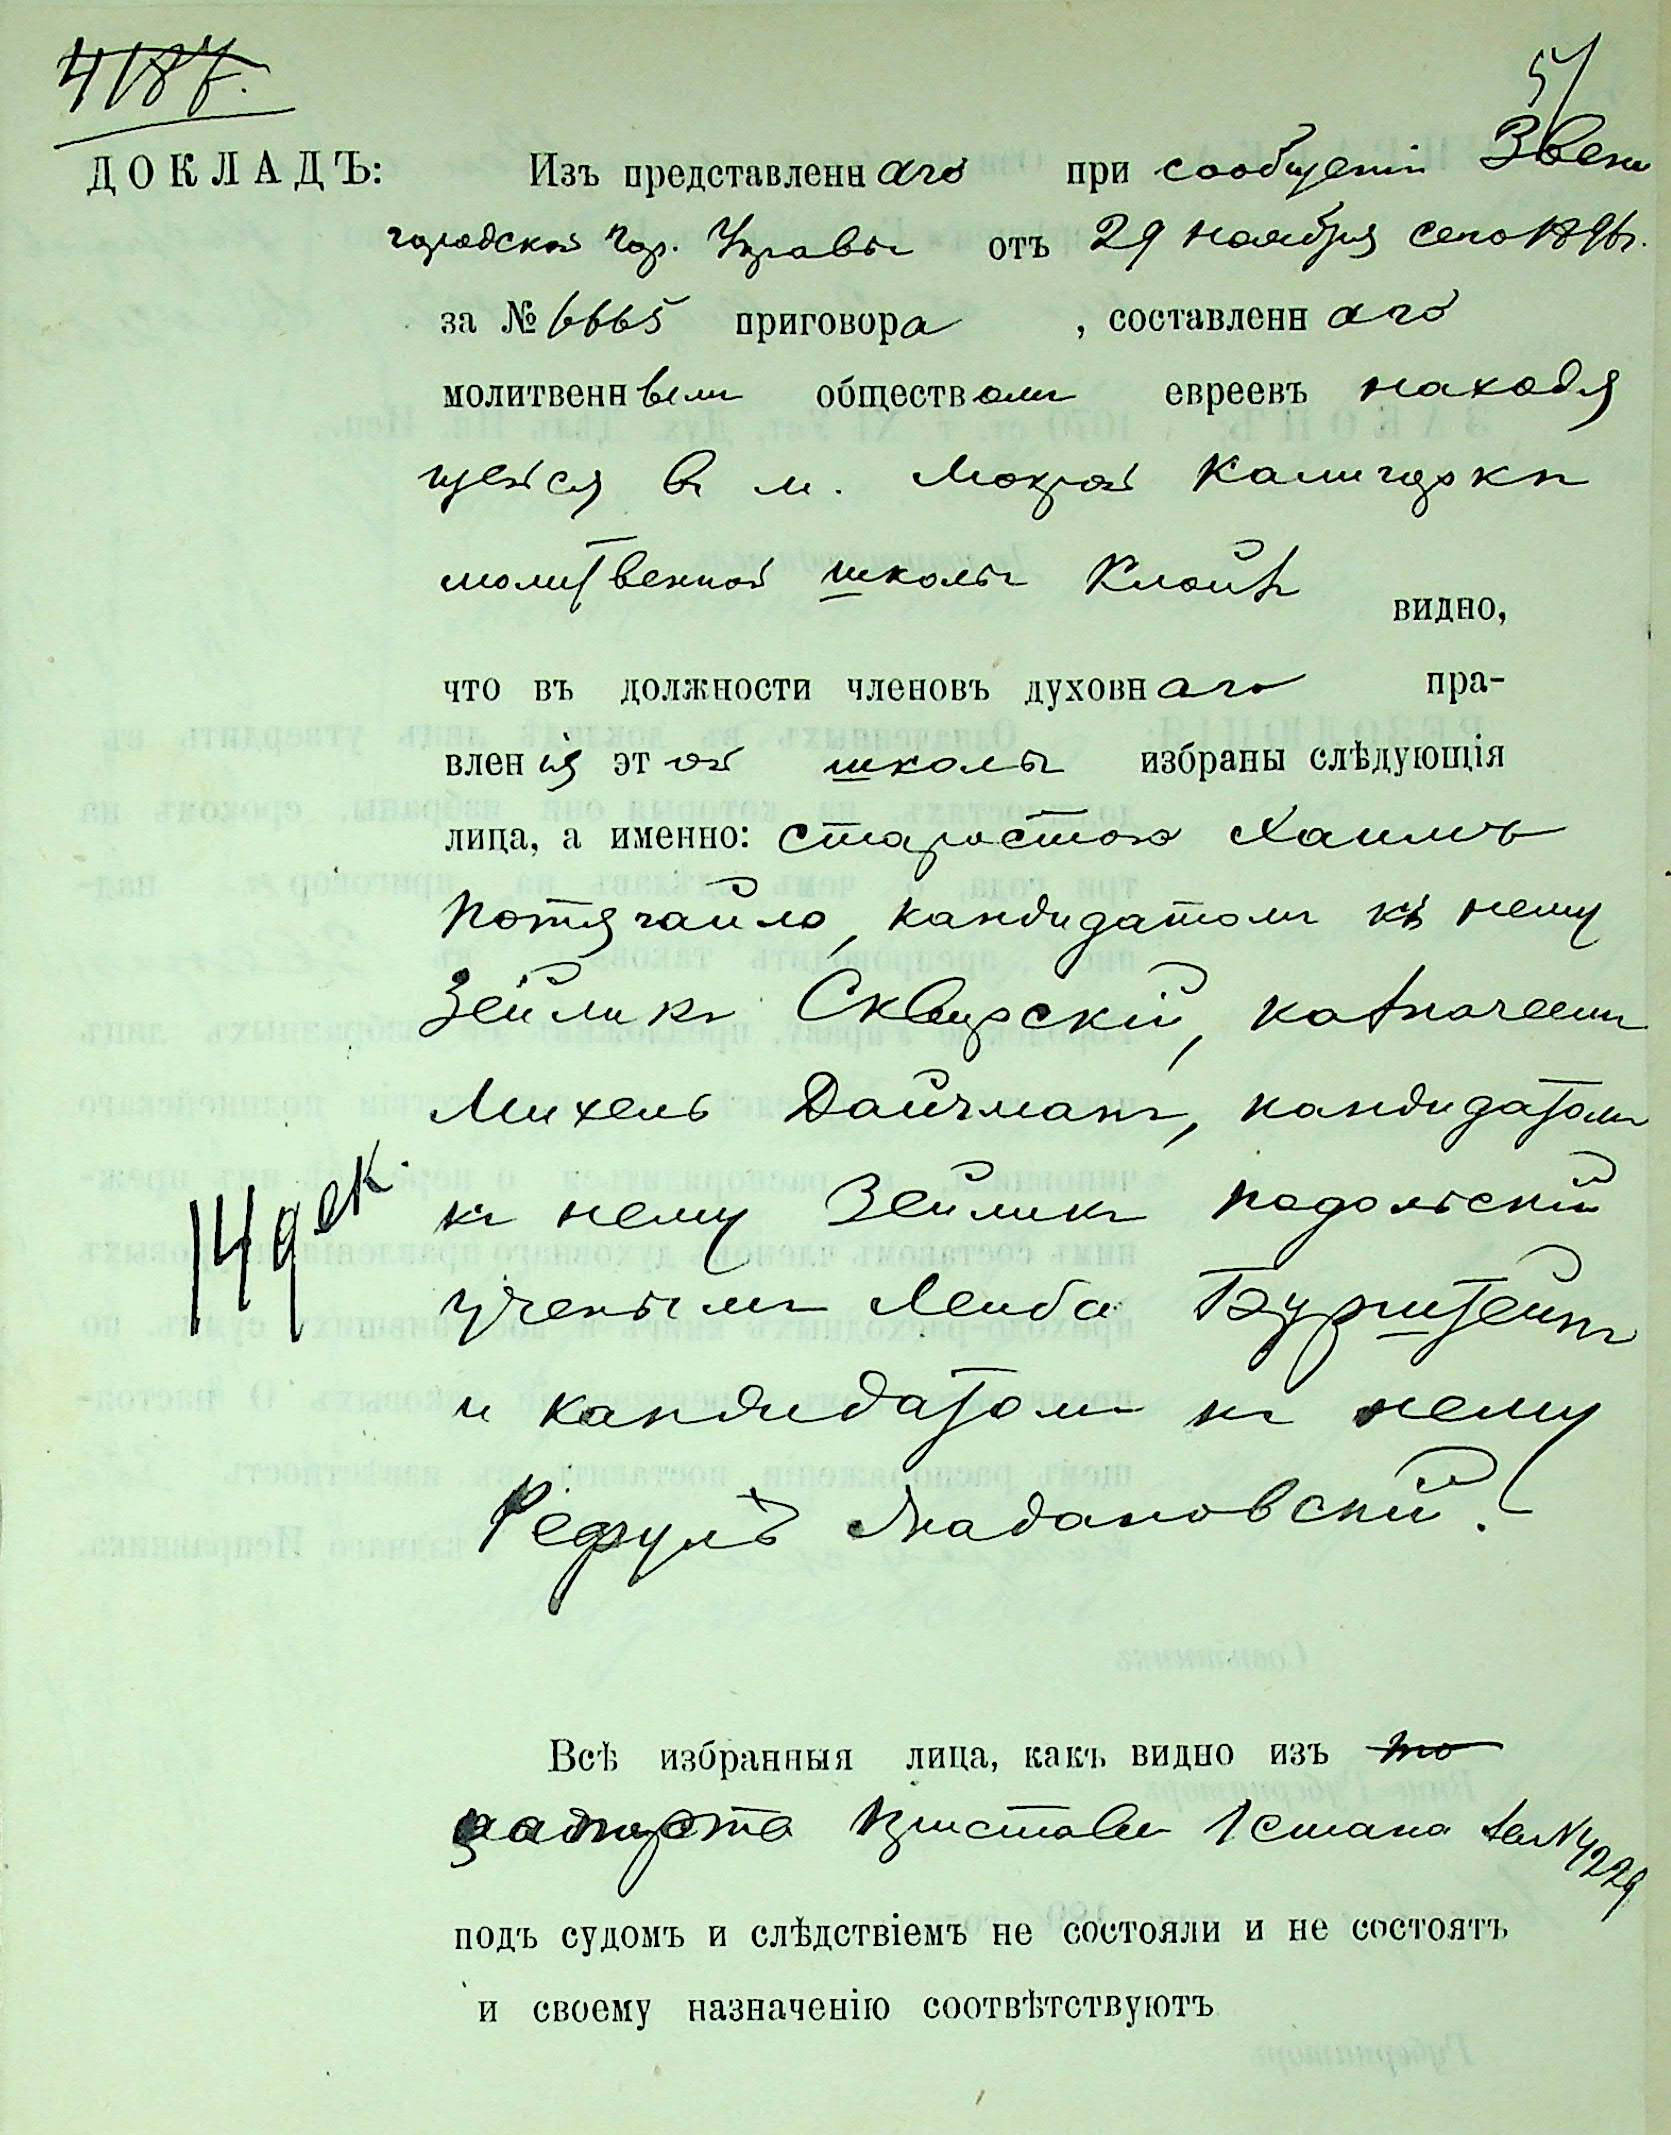 4187.
51
ДОКЛАДЪ: Изъ представленнаго при сообщеніи Звени
городской Гор. Управы отъ 29 ноября сего 1896 г.
за № 6665 приговора, составленнаго
молитвеннымъ обществомъ евреевъ находя
щейся въ м. Мокрой Калигоркѣ
молитвенной школы Клойзъ видно,
что въ должности членовъ духовнаго пра-
вленія этой школы избраны слѣдующія
лица, а именно: старостою Хаимъ
Потягайло, кандидатомъ къ нему
Зейликъ Сквирскій, казначеемъ
Михель Дайчманъ, кандидатомъ
14 дек.
къ нему Зейликъ Подольскій
ученымъ Лейба Бурштейнъ
и кандидатомъ къ нему
Рефулъ Лладановскій.
Всѣ избранныя лица, какъ видно изъ
рапорта Пристава 1 стана за № 4229
подъ судомъ и слѣдствіемъ не состояли и не состоятъ
и своему назначенію соотвѣтствуютъ